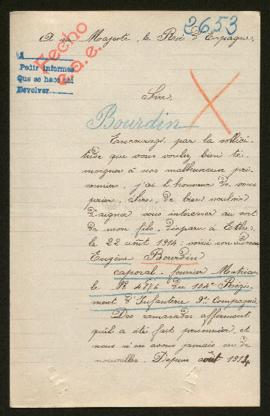 2653
A sa Majesté, le Roi d'Espagne,
Hecho
Pedir informes
Que se hace así
Devolver
Sire
Bourdin
Encouragé par la sollici-
tude que vous voulez bien té-
moigner à nos malheureux pri-
sonniers, j'ai l'honneur de vous
prier, Sire, de bien vouloir
daigner vous intéresser au sort
de mon fils, disparu à Ethe,
le 22 août 1914, voici son adresse
Eugène Bourdin
caporal-fourrier Matricule
le N° 4776 du 104e Régi-
ment d'Infanterie 9e Compagnie
Des camarades affirment
qu'il a été fait prisonnier, et
nous n'en avons jamais eu de
nouvelles. Depuis août 1914